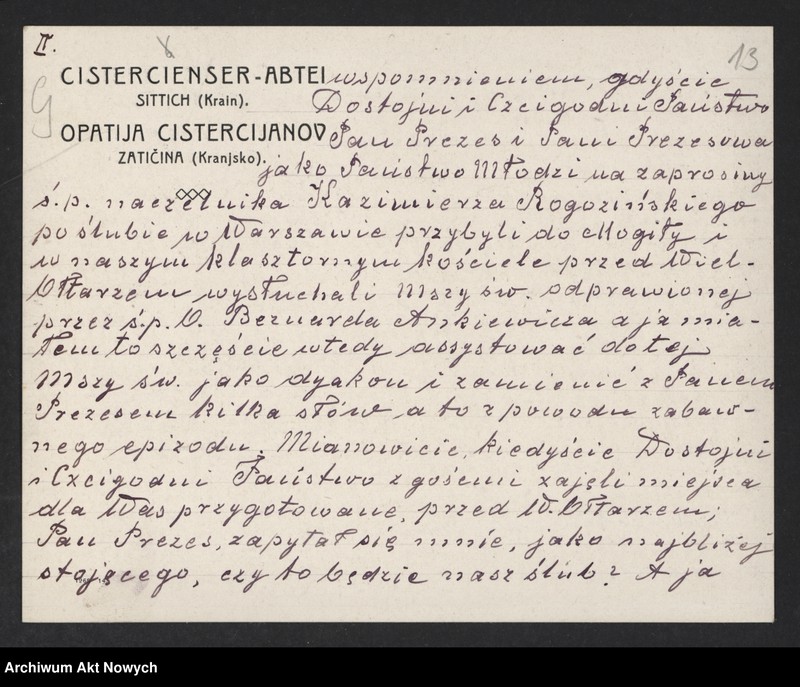 II.
13
CISTERCIENSER-ABTEI
SITTICH (Krain).
OPATIJA CISTERCIJANOV
ZATIČINA (Kranjsko).
wspomnieniem, gdyście
Dostojni i Czcigodni Państwo
Pan Prezes i Pani Prezesowa
jako Państwo Młodzi na zaprosiny
ś.p. naczelnika Kazimierza Rogozińskiego
po ślubie w Warszawie przybyli do Mogiły i
w naszym klasztornym kościele przed Wiel-
Ołtarzem wysłuchali Mszy św. odprawionej
przez ś.p. O. Bernarda Ankiewicza a ja mia-
łem to szczęście wtedy assystować do tej
Mszy św. jako dyakon i zamienić z Panem
Prezesem kilka słów a to z powodu zabaw-
nego epizodu. Mianowicie, kiedyście Dostojni
i Czcigodni Państwo z gośćmi zajęli miejsca
dla Was przygotowane, przed W. Ołtarzem;
Pan Prezes, zapytał się mnie, jako najbliżej
stojęcego, czy to będzie nasz ślub? A ja
Archiwum Akt Nowych